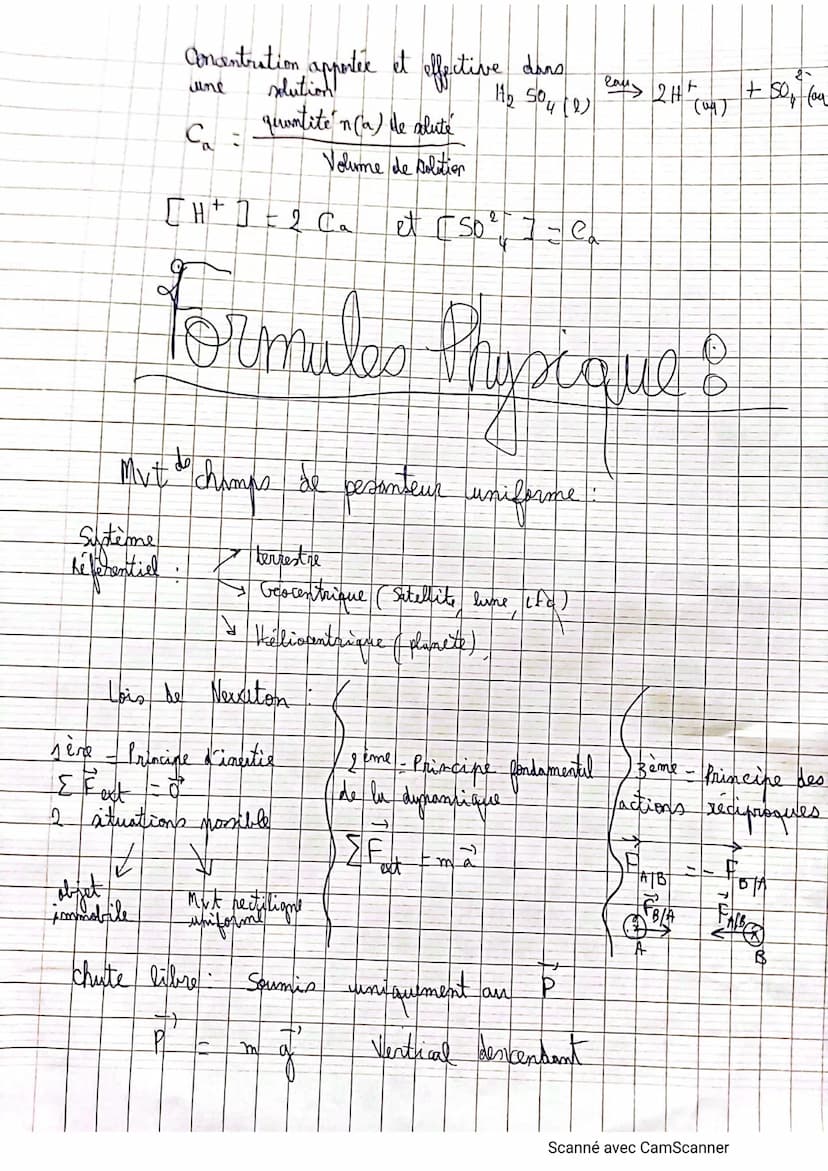 Concentration apportée et effective dans
une solution
H₂SO₄(l) eau→ 2H⁺(aq) + SO₄²⁻(aq
Cₐ = quantité n(a) de soluté
Volume de solution
[H⁺] = 2 Cₐ et [SO₄²⁻] = Cₐ
Formules Physique :
Mvt de champs de pesanteur uniforme :
Système
Référentiel :
→ terrestre
→ Géocentrique (Satellite, lune,
→ Héliocentrique (planète)
Lois de Newton :
1ère = Principe d'inertie
Σ F⃗ext = 0⃗
2 situations possible
objet
immobile
Mvt rectiligne
uniforme
2ème - Principe fondamental
de la dynamique
Σ F⃗ext = m a⃗
3ème - Principe des
actions réciproques
F⃗A/B = - F⃗B/A
F⃗B/A
A
F⃗A/B
B
chute libre : Soumis uniquement au P⃗
P⃗ = m g⃗ Vertical descendant
Scanné avec CamScanner